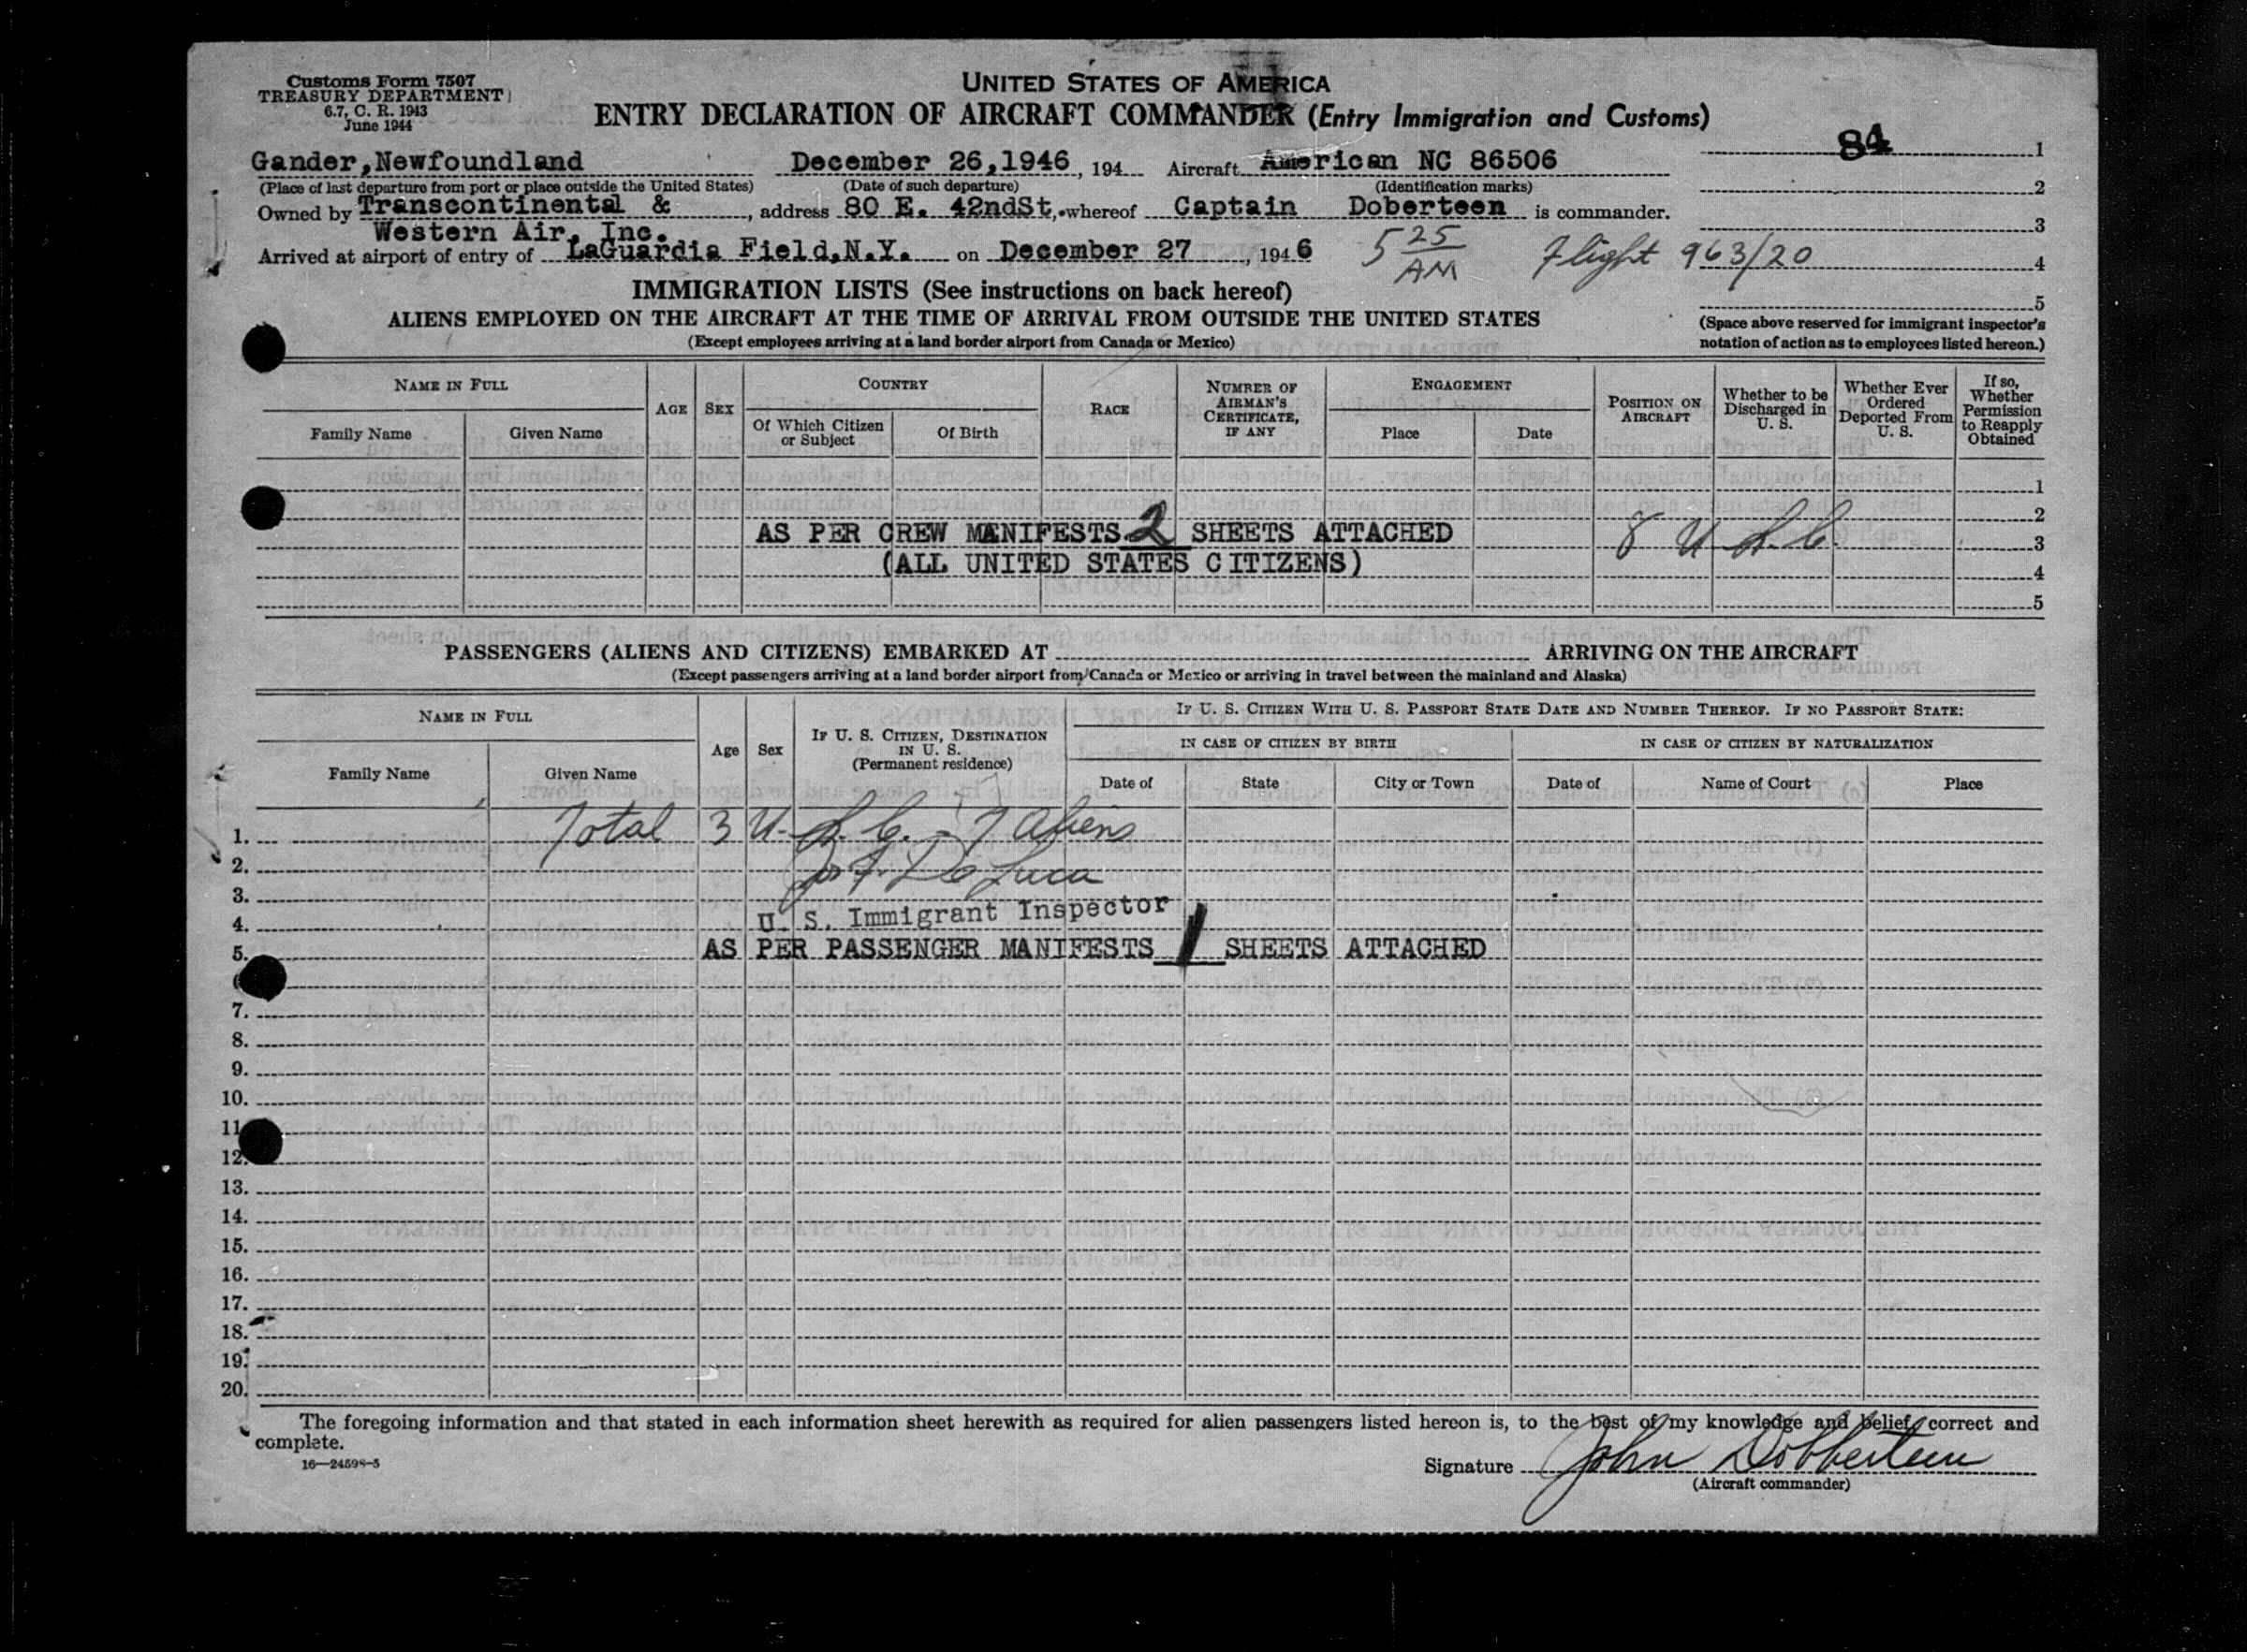 Customs Form 7507
TREASURY DEPARTMENT
6.7, C. R. 1943
June 1944
UNITED STATES OF AMERICA
ENTRY DECLARATION OF AIRCRAFT COMMANDER (Entry Immigration and Customs)
84
1
Gander,Newfoundland December 26,1946, 194 Aircraft American NC 86506
(Place of last departure from port or place outside the United States) (Date of such departure) (Identification marks)
2
Owned by Transcontinental & , address 80 E. 42ndSt, whereof Captain Doberteen is commander.
Western Air, Inc.
3
Arrived at airport of entry of LaGuardia Field,N.Y. on December 27, 1946 5 25 AM Flight 963/20
4
5
IMMIGRATION LISTS (See instructions on back hereof)
ALIENS EMPLOYED ON THE AIRCRAFT AT THE TIME OF ARRIVAL FROM OUTSIDE THE UNITED STATES
(Except employees arriving at a land border airport from Canada or Mexico)
(Space above reserved for immigrant inspector's
notation of action as to employees listed hereon.)
NAME IN FULL
Family Name
Given Name
AGE
SEX
COUNTRY
Of Which Citizen
or Subject
Of Birth
RACE
NUMBER OF
AIRMAN'S
CERTIFICATE,
IF ANY
ENGAGEMENT
Place
Date
POSITION ON
AIRCRAFT
Whether to be
Discharged in
U. S.
Whether Ever
Ordered
Deported From
U. S.
If so,
Whether
Permission
to Reapply
Obtained
1
2
AS PER CREW MANIFESTS 2 SHEETS ATTACHED 8 U.S.C.
3
(ALL UNITED STATES CITIZENS)
4
5
PASSENGERS (ALIENS AND CITIZENS) EMBARKED AT ARRIVING ON THE AIRCRAFT
(Except passengers arriving at a land border airport from Canada or Mexico or arriving in travel between the mainland and Alaska)
NAME IN FULL
Family Name
Given Name
Age
Sex
IF U. S. CITIZEN, DESTINATION
IN U. S.
(Permanent residence)
IF U. S. CITIZEN WITH U. S. PASSPORT STATE DATE AND NUMBER THEREOF. IF NO PASSPORT STATE:
IN CASE OF CITIZEN BY BIRTH
Date of
State
City or Town
IN CASE OF CITIZEN BY NATURALIZATION
Date of
Name of Court
Place
1. Total 3 U.S.C. - 7 Aliens
2. De Luca
3.
4. U. S. Immigrant Inspector
5. AS PER PASSENGER MANIFESTS 1 SHEETS ATTACHED
7.
8.
9.
10.
11
12.
13.
14.
15.
16.
17.
18.
19.
20.
The foregoing information and that stated in each information sheet herewith as required for alien passengers listed hereon is, to the best of my knowledge and belief, correct and
complete.
16—24598-5
Signature John Dobberteen
(Aircraft commander)